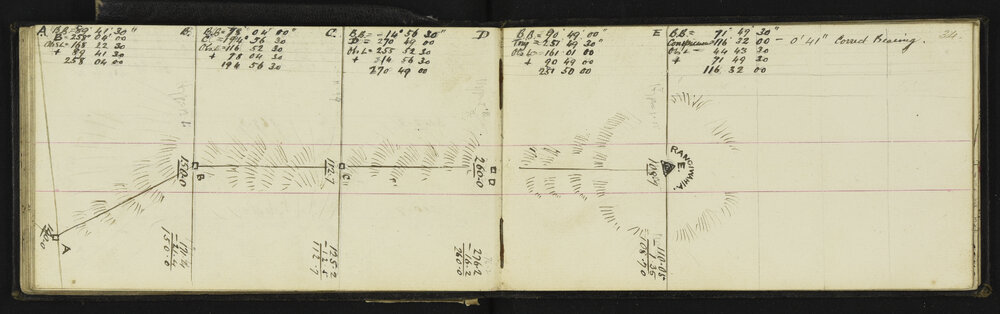 A. B.B. = 89° 41' 30"
B = 258 04 00
Obs L = 168 22 30
+ 89 41 30
258 04 00
B. B.B = 78° 04' 00"
C = 194 56 30
Obs L = 116 52 30
+ 78 04 30
194 56 30
C. B.B = - 14° 56' 30"
D = 270 49 00
Obs L = 255 52 30
+ 14 56 30
270 49 00
D B.B. = 90° 49' 00"
Trig = 251 49 30
Obs L = 161 01 00
+ 90 49 00
251 50 00
E B.B. = 71° 49' 30"
116 32 00 - 0' 41" Correct Bearing.
Obs L = 44 43 30
+ 71 49 30
116 32 00
34.
A
150.0
B
112.7
C
260.0
D
108.7
RANGIWAHIA.
E.
- 21.4
150.0
125.2
- 12.5
112.7
276.2
- 16.2
260.0
110.05
- 1.35
108.70